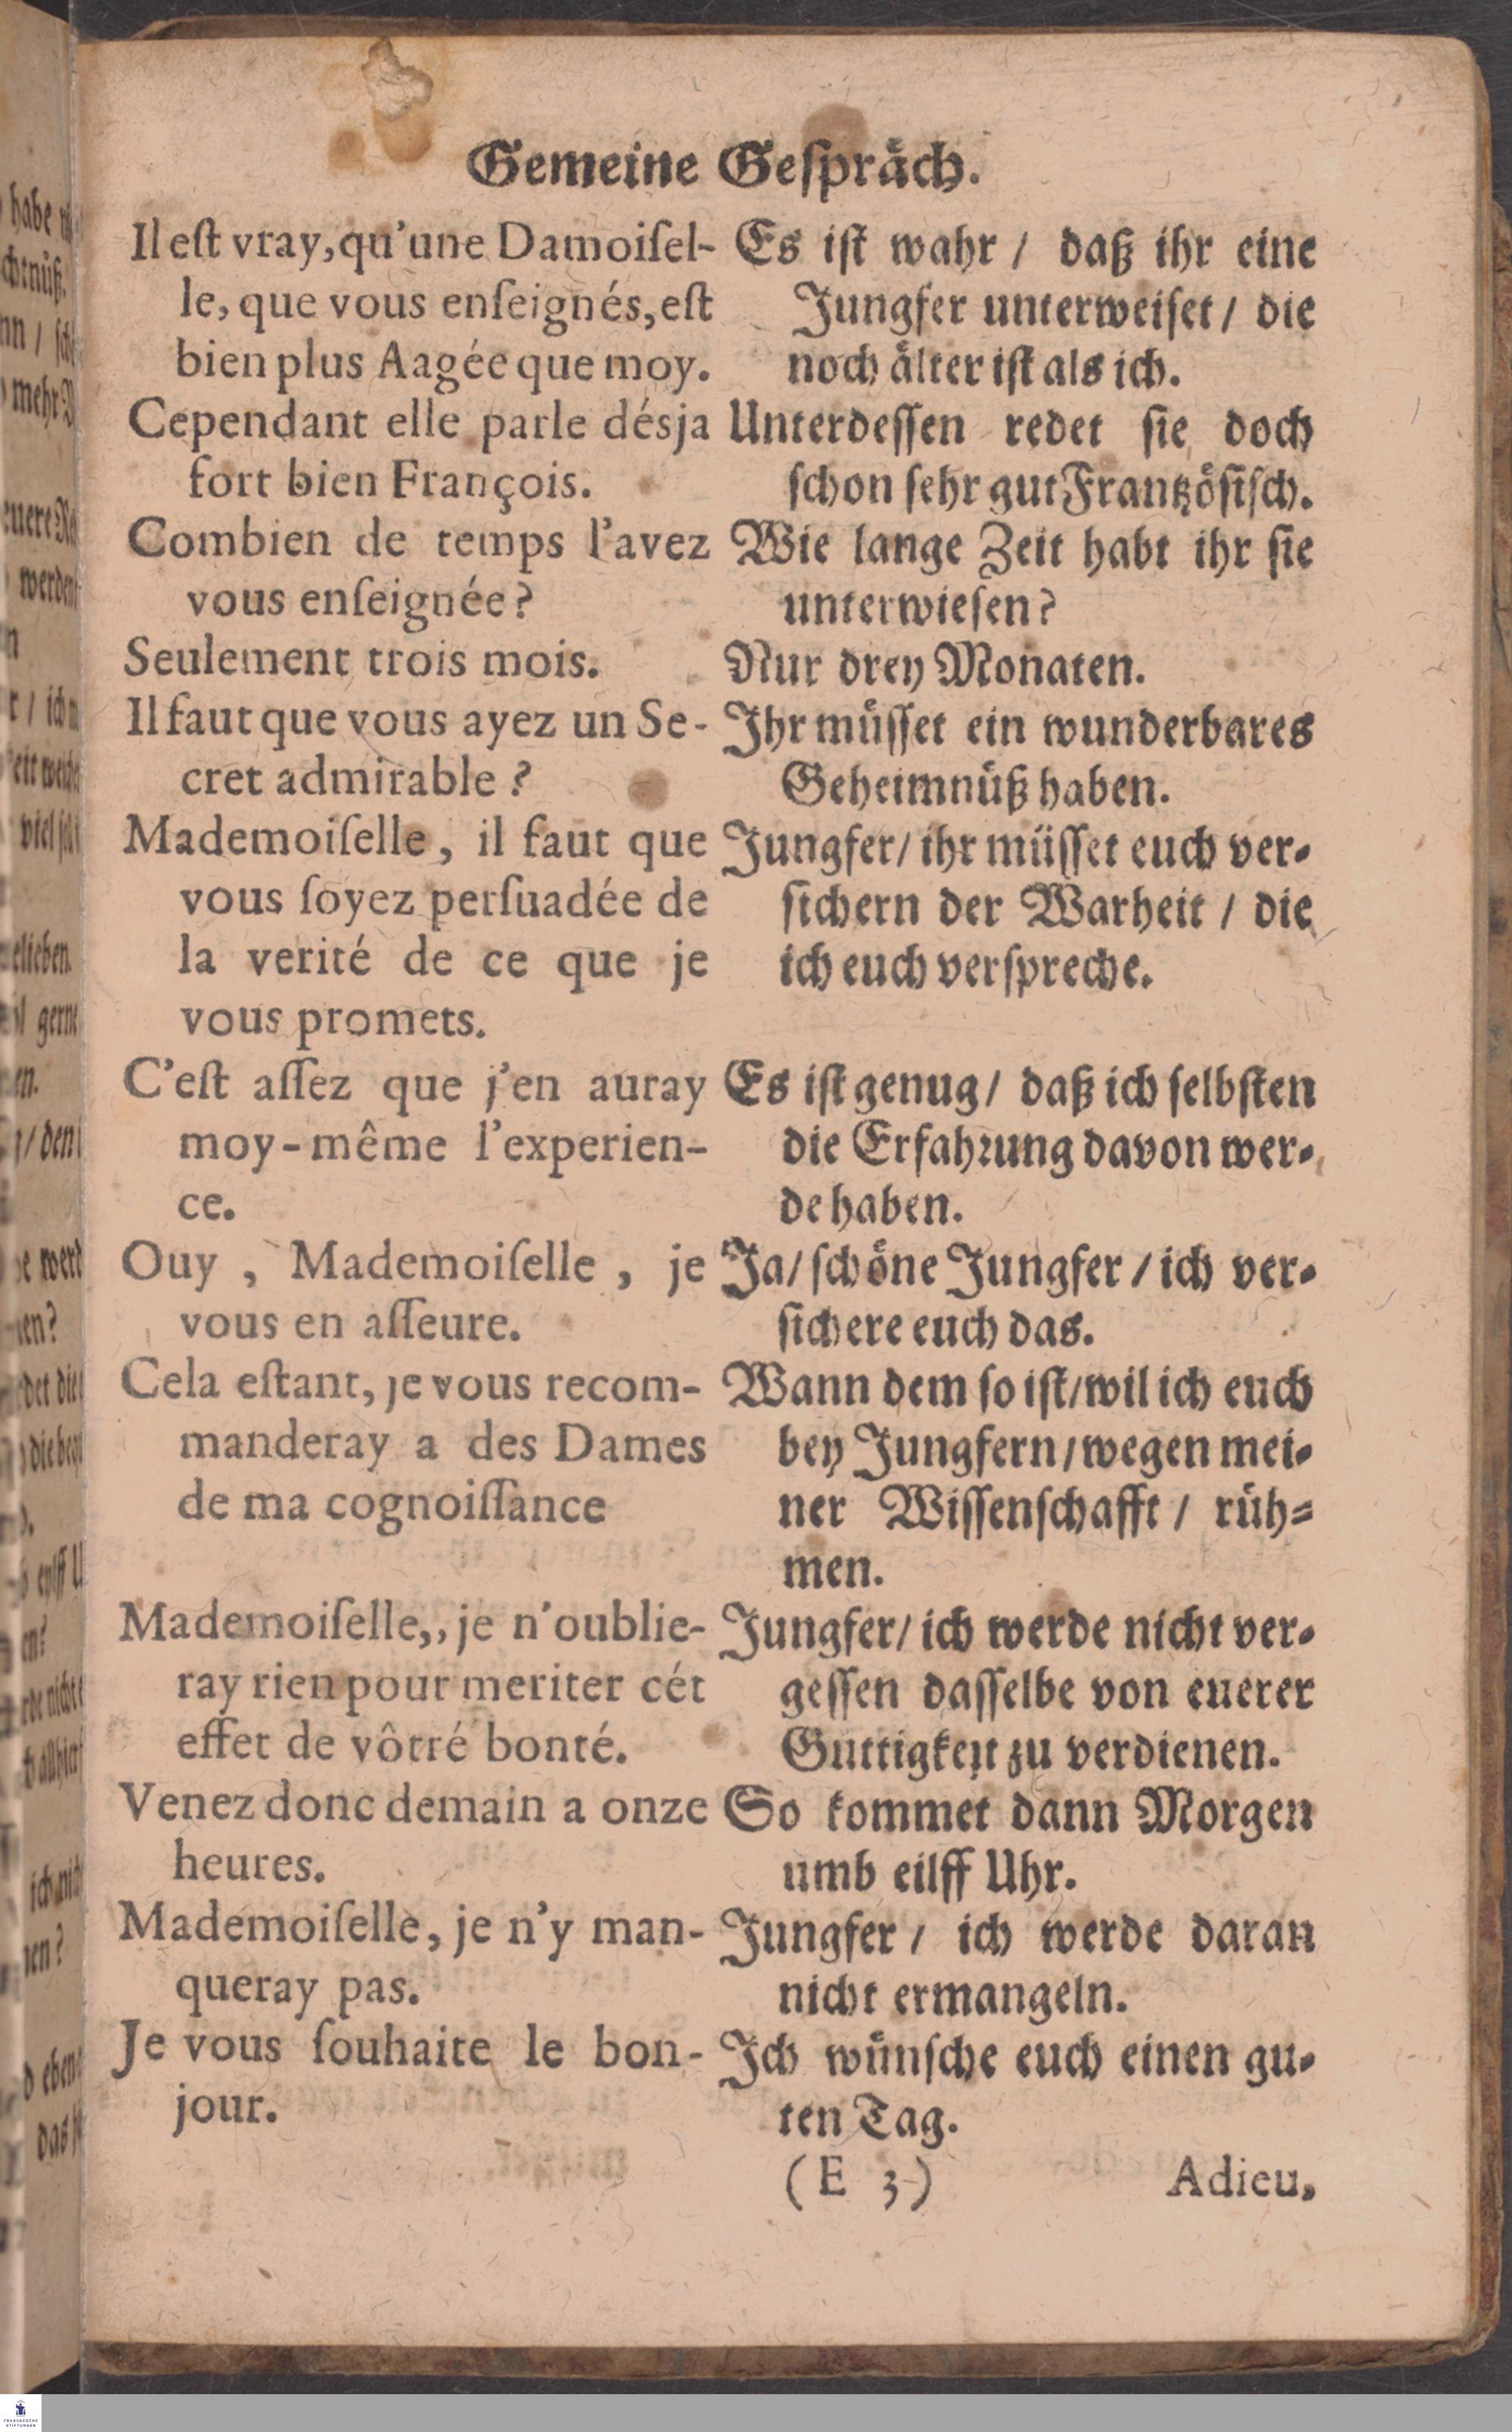 Gemeine Geſpräch.
Il eſt vray, qu'une Damoiſel-
le, que vous enſeignés, eſt
bien plus Aagée que moy.
Cependant elle parle désja
fort bien François.
Combien de temps l'avez
vous enſeignée?
Seulement trois mois.
Il faut que vous ayez un Se-
cret admirable?
Mademoiſelle, il faut que
vous ſoyez perſuadée de
la verité de ce que je
vous promets.
C'eſt aſſez que j'en auray
moy-même l'experien-
ce.
Ouy, Mademoiſelle, je
vous en aſſeure.
Cela eſtant, je vous recom-
manderay a des Dames
de ma cognoiſſance
Mademoiſelle,, je n'oublie-
ray rien pour meriter cét
effet de vôtré bonté.
Venez donc demain a onze
heures.
Mademoiſelle, je n'y man-
queray pas.
Je vous ſouhaite le bon-
jour.
Es iſt wahr / daß ihr eine
Jungfer unterweiſet / die
noch älter iſt als ich.
Unterdeſſen redet ſie doch
ſchon ſehr gut Frantzöſiſch.
Wie lange Zeit habt ihr ſie
unterwieſen?
Nur drey Monaten.
Ihr müſſet ein wunderbares
Geheimnüß haben.
Jungfer / ihr müſſet euch ver-
ſichern der Warheit / die
ich euch verſpreche.
Es iſt genug / daß ich ſelbſten
die Erfahrung davon wer-
de haben.
Ja / ſchöne Jungfer / ich ver-
ſichere euch das.
Wann dem ſo iſt / wil ich euch
bey Jungfern / wegen mei-
ner Wiſſenſchafft / rüh-
men.
Jungfer / ich werde nicht ver-
geſſen daſſelbe von euerer
Güttigkeit zu verdienen.
So kommet dann Morgen
umb eilff Uhr.
Jungfer / ich werde daran
nicht ermangeln.
Ich wünſche euch einen gu-
ten Tag.
(E 3)
Adieu,